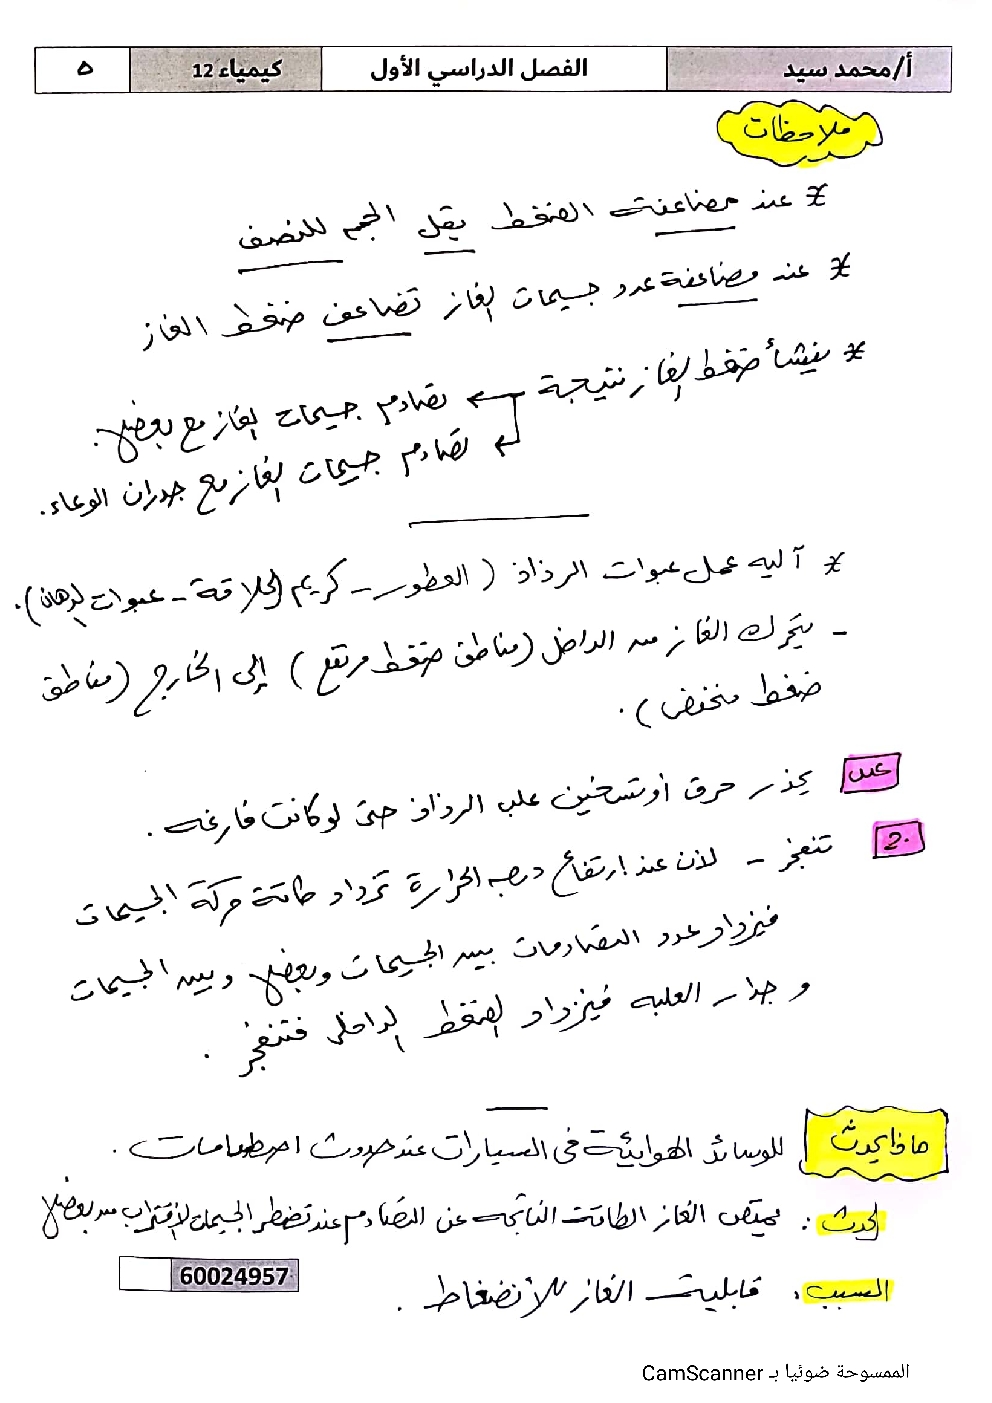 أ/محمد سيد الفصل الدراسي الأول كيمياء 12 ٥
ملاحظات
* عند مضاعفة الضغط يقل الحجم للنصف
* عند مضاعفة عدد جسيمات الغاز تضاعف ضغط الغاز
* ينشأ ضغط الغاز نتيجة ← تصادم جسيمات الغاز مع بعضها.
← تصادم جسيمات الغاز مع جدران الوعاء.
* آلية عمل عبوات الرذاذ (العطور - كريم الحلاقة - عبوات الدهان).
- يتحرك الغاز من الداخل (مناطق ضغط مرتفع) إلى الخارج (مناطق
ضغط منخفض).
علل يحذر حرق أو تسخين علب الرذاذ حتى لو كانت فارغه.
تنفجر - لأن عند ارتفاع درجه الحرارة تزداد طاقة حركة الجسيمات
فيزداد عدد التصادمات بين الجسيمات وبعضها وبين الجسيمات
و جدار العلبه فيزداد الضغط الداخلى فتنفجر.
ماذا يحدث للوسائد الهوائية فى السيارات عند حدوث اصطدامات.
الحدث: يمتص الغاز الطاقة الناتجه عن التصادم عند تضطر الجسيمات لإقتراب من بعضها
السبب: قابلية الغاز للأنضغاط.
60024957
الممسوحة ضوئيا بـ CamScanner